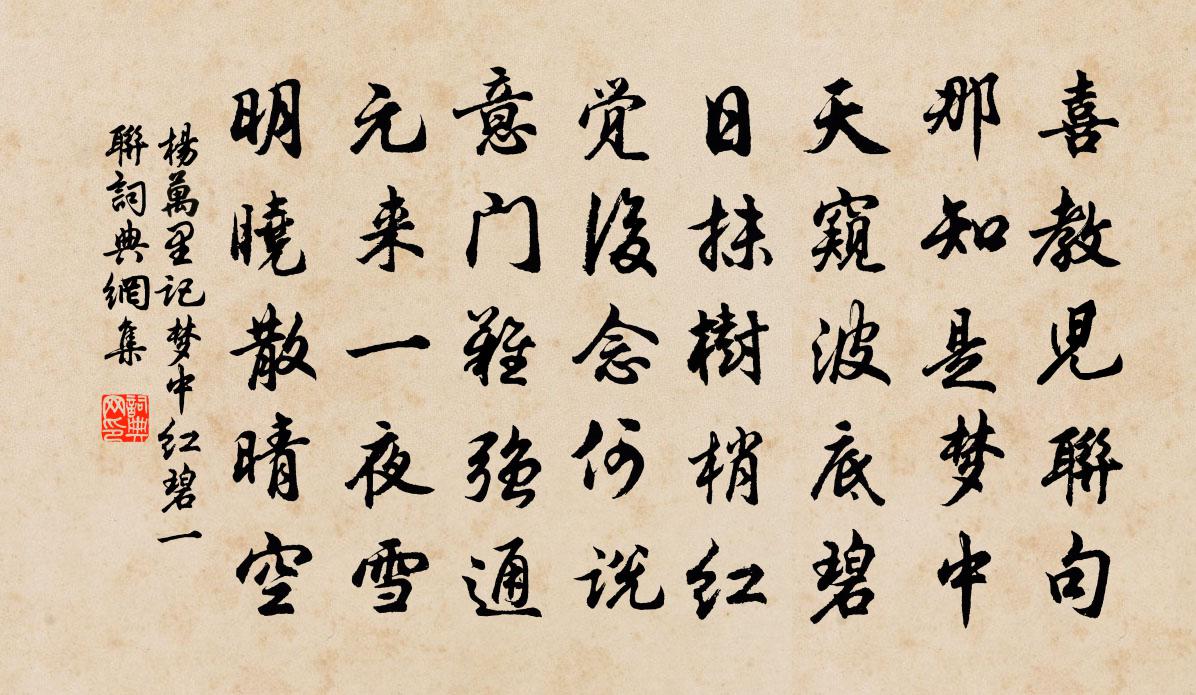 喜教児聯句
那知是梦中
天窺波底碧
日抹樹梢红
覚後念何说
意门難强通
元来一夜雪
明曉散晴空
楊萬里记梦中红碧一
聯詞典網集
詞典
网印